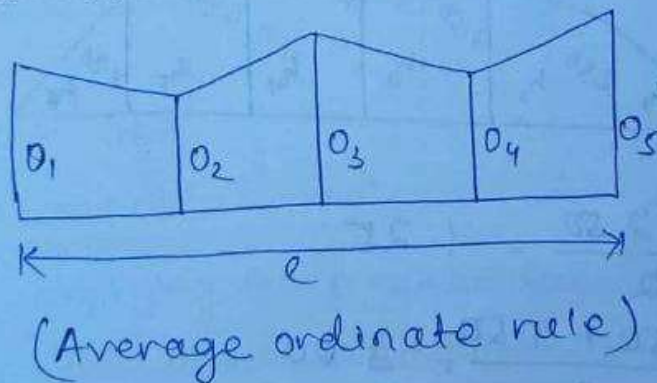 O₁ O₂ O₃ O₄ O₅
l
(Average ordinate rule)